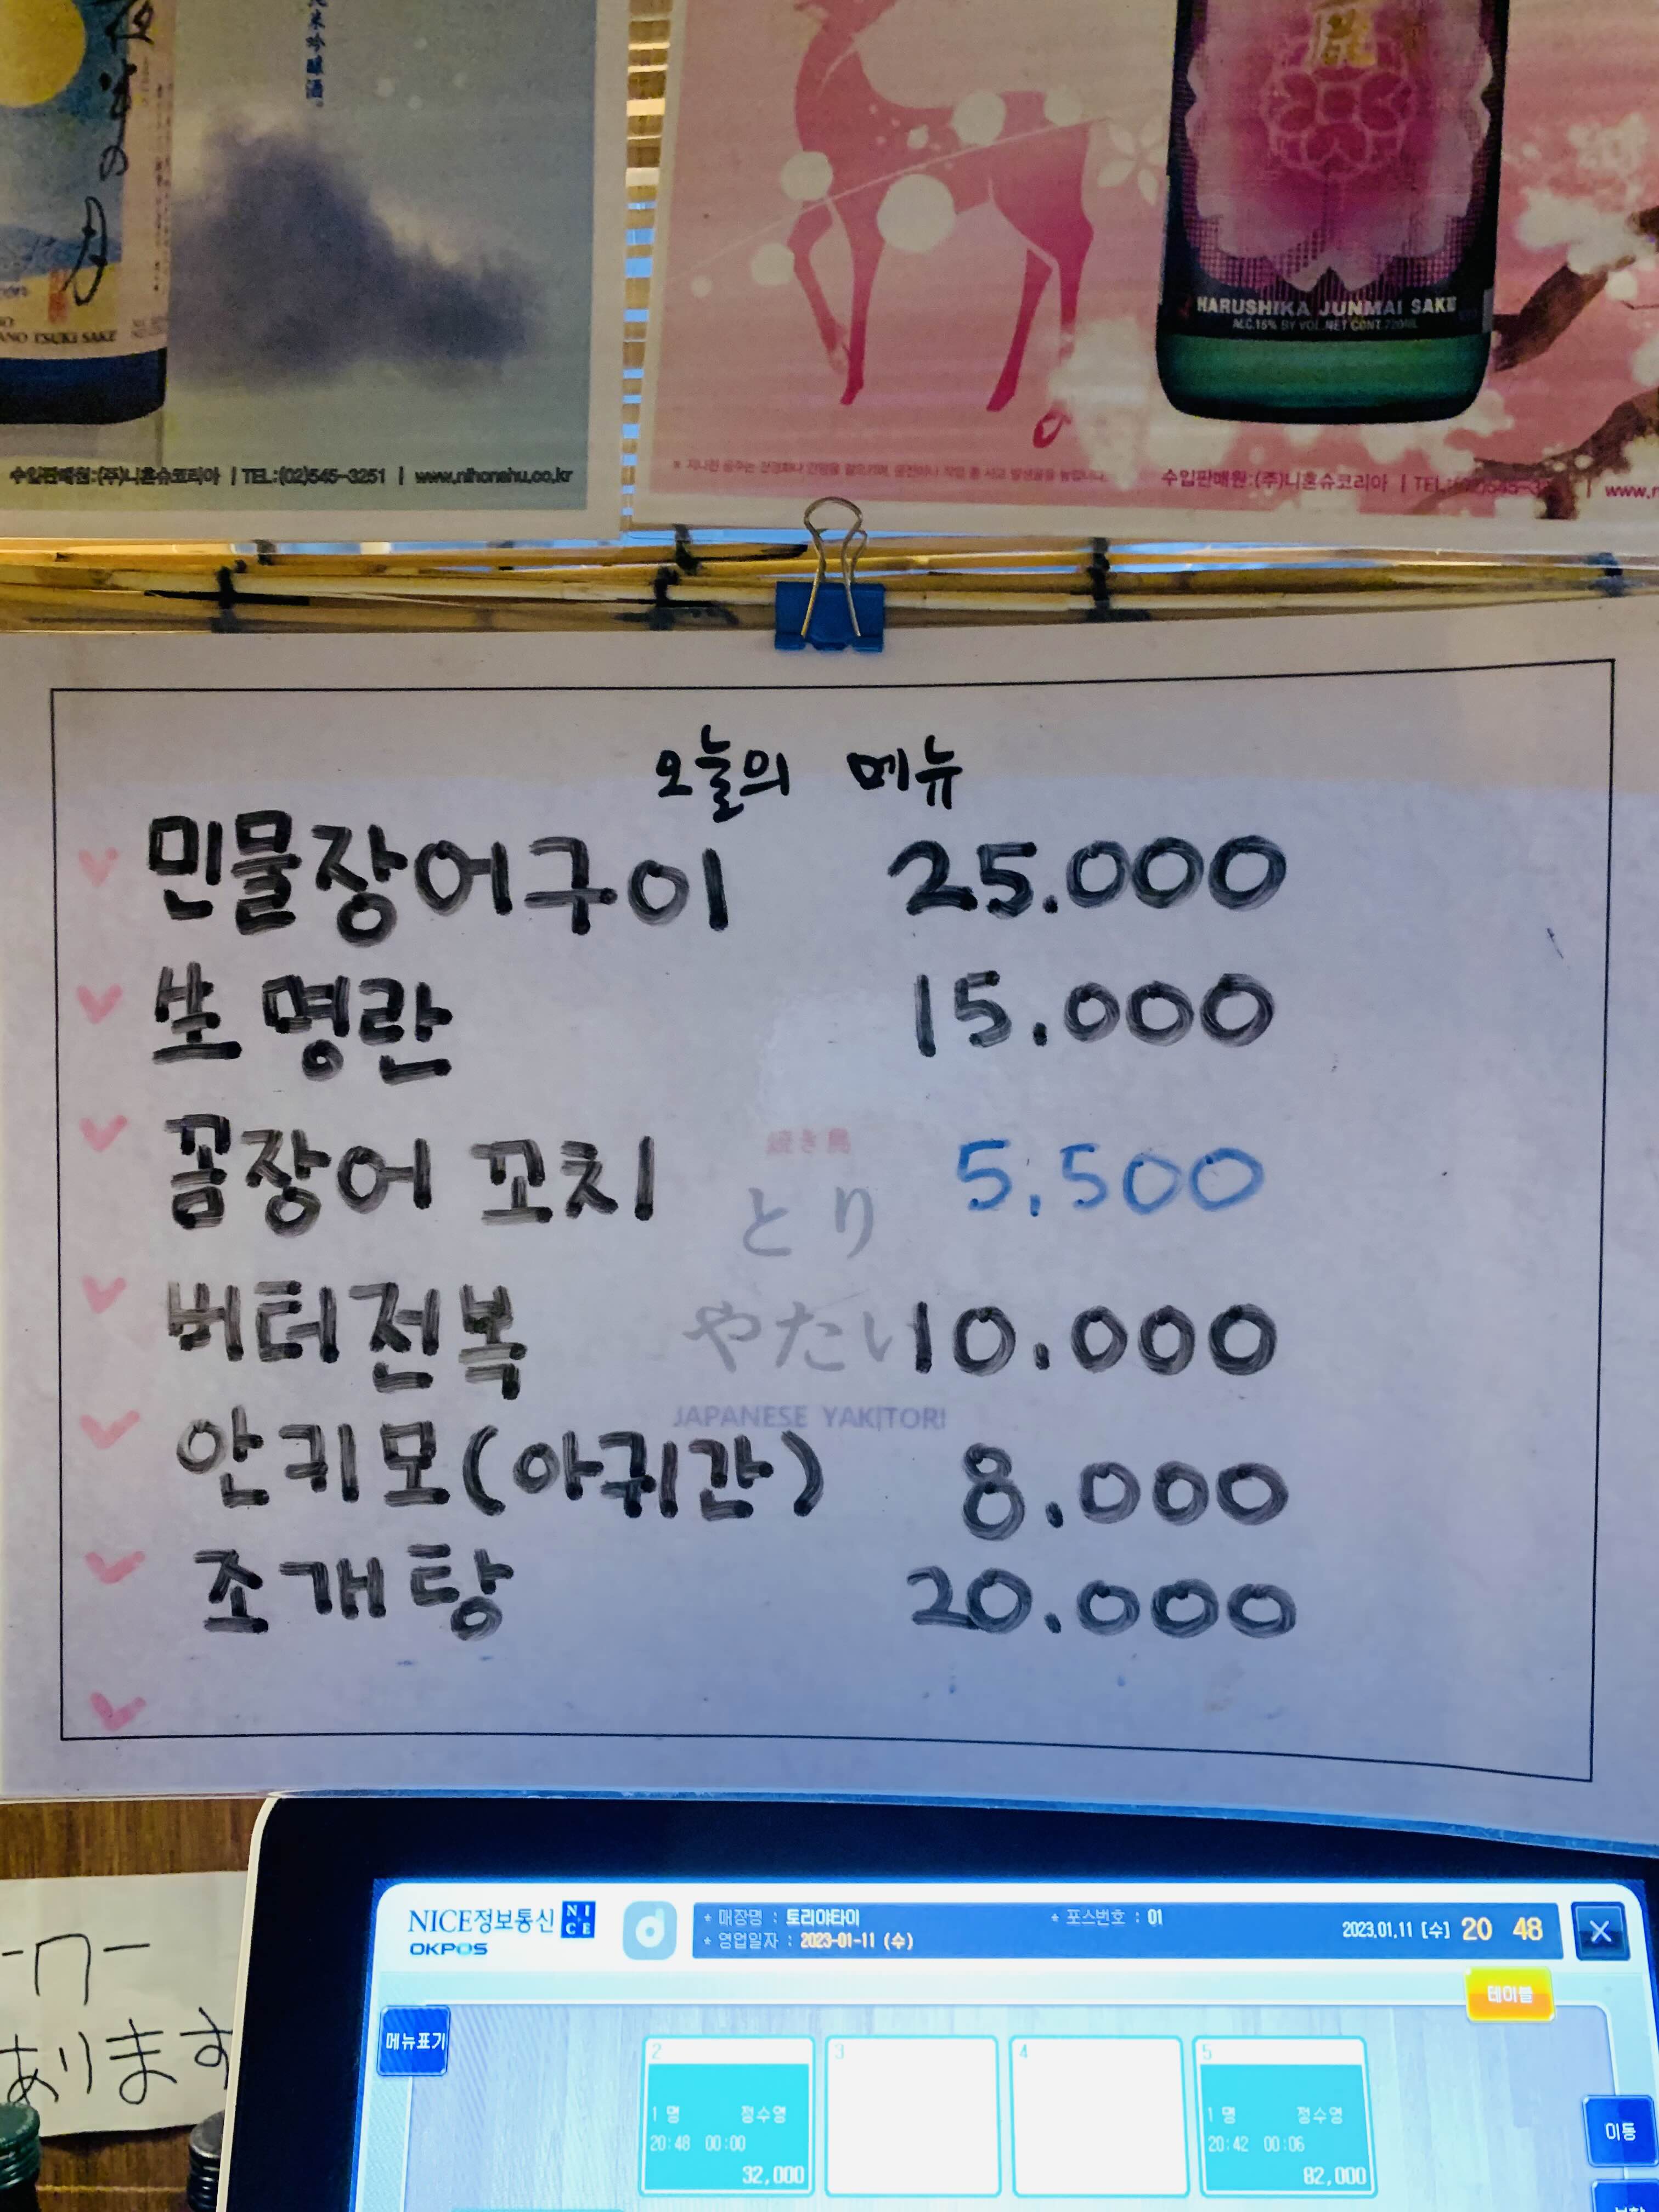 夜半の月
純米吟醸酒。
ANO TSUKI SAKE
수입판매원:(주)니혼슈코리아 | TEL:(02)545-3251 | www.nihonshu.co.kr
鹿
HARUSHIKA JUNMAI SAKE
ALC.15% BY VOL.NET CONT.720ML
수입판매원:(주)니혼슈코리아 | TEL:(02)545-3
오늘의 메뉴
민물장어구이 25.000
生 명란 15.000
곰장어 꼬치 5,500
버터전복 10.000
안키모(아귀간) 8.000
조개탕 20.000
とり
やたい
JAPANESE YAKITORI
あります
NICE정보통신 NICE
OKPOS
* 매장명 : 토리야타이 * 포스번호 : 01
* 영업일자 : 2023-01-11 (수)
2023.01.11 [수] 20 48
X
테이블
메뉴표기
2 3 4 5
1 명 정수영
20:48 00:00
32,000
1 명 정수영
20:42 00:06
82,000
이동